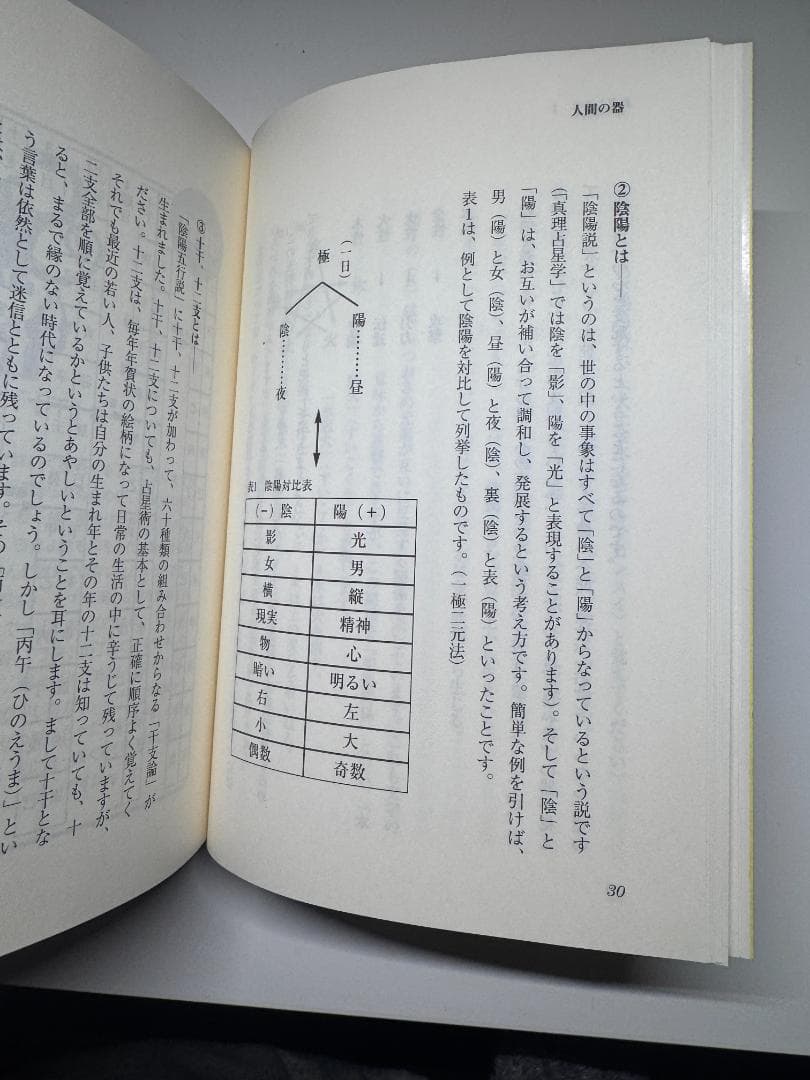 人間の器
② 陰陽とは――
「陰陽説」というのは、世の中の事象はすべて「陰」と「陽」からなっているという説です
（「真理占星学」では陰を「影」、陽を「光」と表現することがあります）。そして「陰」と
「陽」は、お互いが補い合って調和し、発展するという考え方です。簡単な例を引けば、
男（陽）と女（陰）、昼（陽）と夜（陰）、裏（陰）と表（陽）といったことです。
表1は、例として陰陽を対比して列挙したものです。（一極二元法）
（一日）
極
陽………昼
陰………夜
表1 陰陽対比表
（−）陰 陽（+）
影 光
女 男
横 縦
現実 精神
物 心
暗い 明るい
右 左
小 大
偶数 奇数
30
③ 十干、十二支とは――
「陰陽五行説」に十干、十二支が加わって、六十種類の組み合わせからなる「干支論」が
生まれました。十干、十二支についても、占星術の基本として、正確に順序よく覚えてく
ださい。十二支は、毎年年賀状の絵柄になって日常の生活の中に辛うじて残っていますが、
それでも最近の若い人、子供たちは自分の生まれ年とその年の十二支は知っていても、十
二支全部を順に覚えているかというとあやしいということを耳にします。まして十干とな
ると、まるで縁のない時代になっているのでしょう。しかし「丙午（ひのえうま）」とい
う言葉は依然として迷信とともに残っています。その